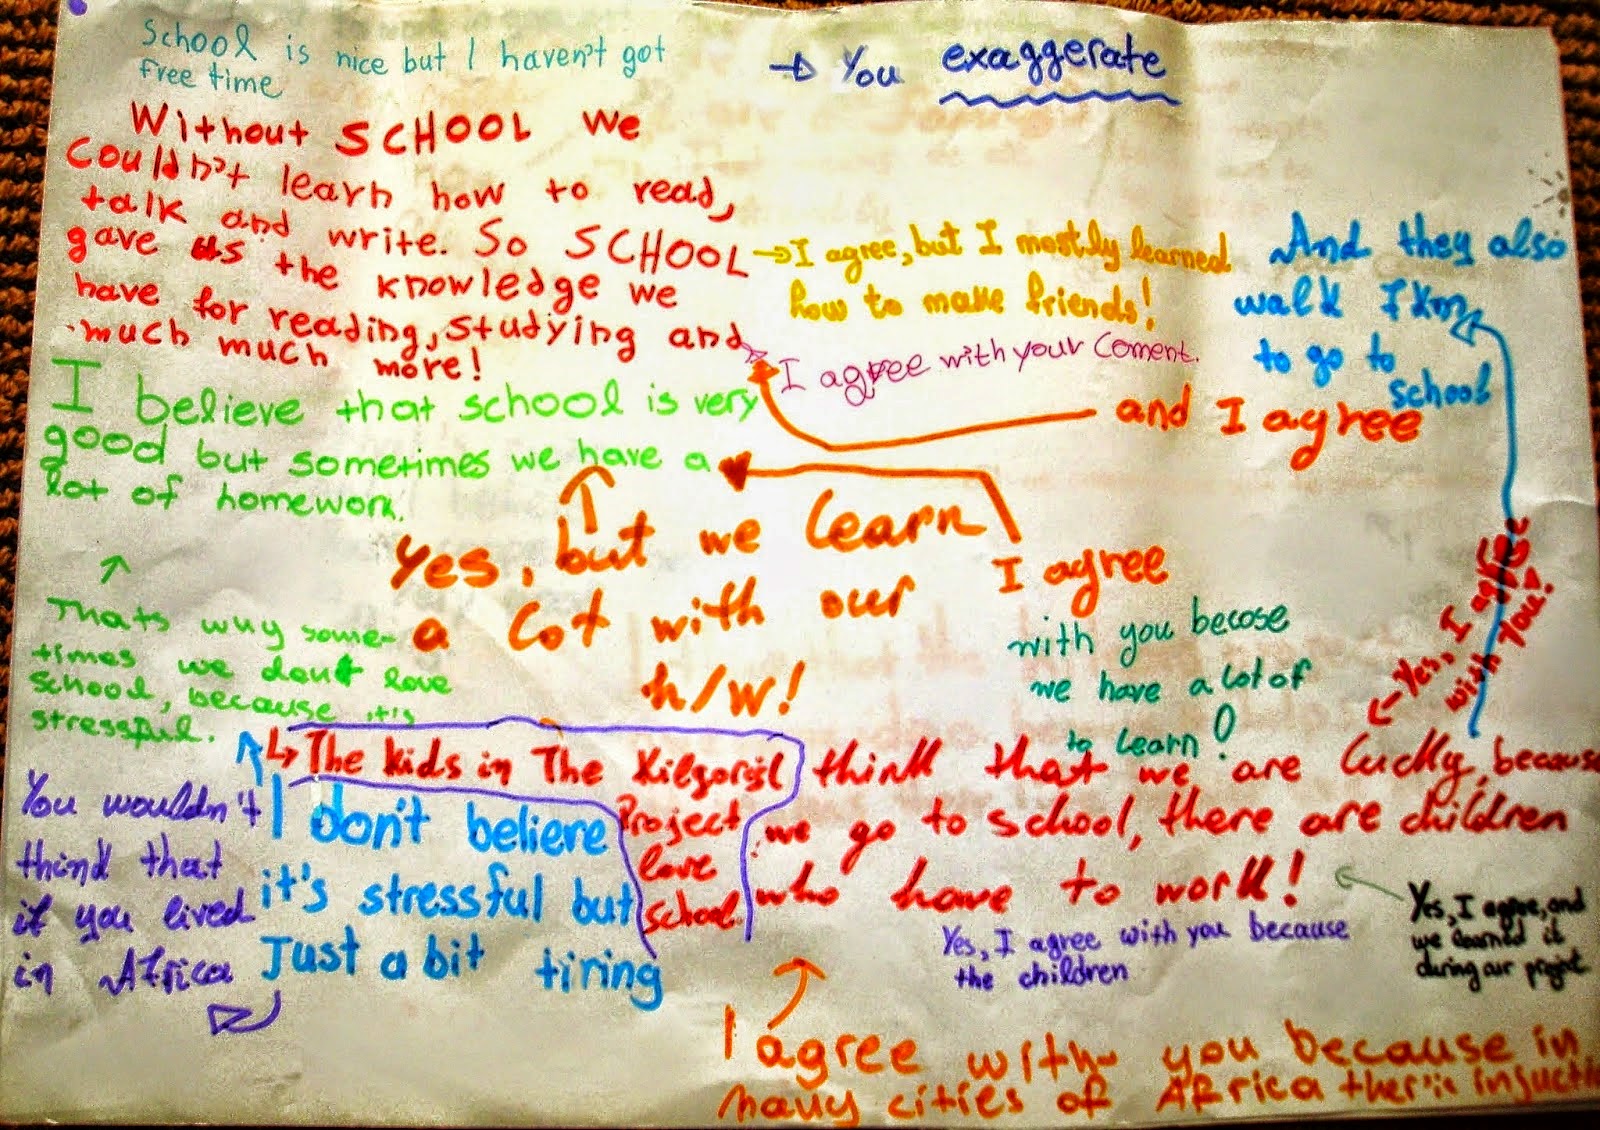 School is nice but I haven't got
free time
→ You exaggerate
Without SCHOOL we
couldn't learn how to read,
talk and write. So SCHOOL
gave us the knowledge we
have for reading, studying and
much much more!
→ I agree, but I mostly learned
how to make friends!
I agree with your coment.
And they also
walk 7km
to go to
school
and I agree
I believe that school is very
good but sometimes we have a
lot of homework.
Yes, but we learn
a lot with our
h/w!
I agree
with you becose
we have a lot of
to learn!
Yes, I agree
with you!
Thats why some-
times we dont love
school, because it's
stressful.
The kids in The
Project
love
school.
think that we are lucky, because
we go to school, there are children
who have to work!
You wouldn't
think that
if you lived
in Africa
I don't believe
it's stressful but
Just a bit tiring
Yes, I agree with you because
the children
Yes, I agree, and
we learned it
during our project
I agree with you because in
many cities of Africa